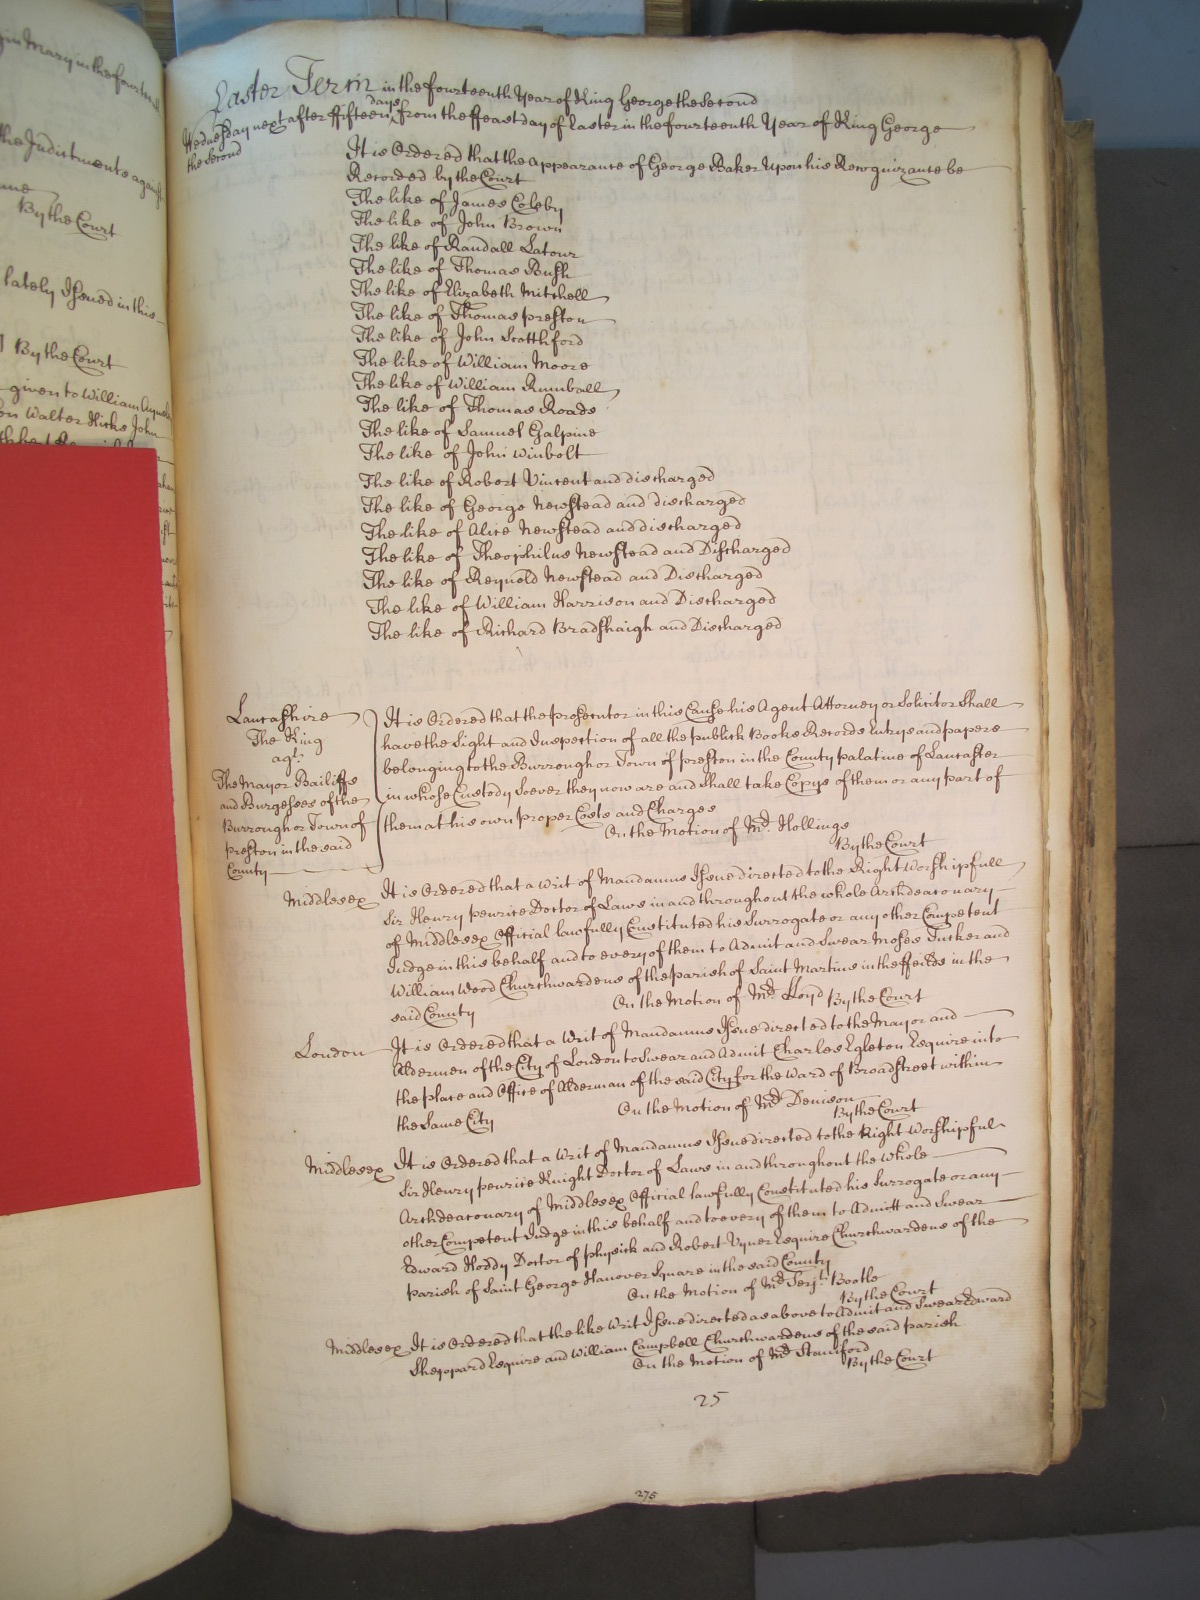 gin Mary in the fourteenth
the Indictments against
By the Court
lately Issued in this
By the Court
given to William
on Walter Hicks John
Easter Term in the fourteenth Year of King George the Second
Wednesday next after ffifteen days from the ffeast day of Easter in the fourteenth Year of King George
the Second
It is Ordered that the appearance of George Baker Upon his Recognizance be
Recorded by the Court
The like of James Coleby
The like of John Brown
The like of Randall Latour
The like of Thomas Bush
The like of Elizabeth Mitchell
The like of Thomas Preston
The like of John Scotthford
The like of William Moore
The like of William Rumball
The like of Thomas Roads
The like of Samuel Galpine
The like of John Winbolt
The like of Robert Vincent and discharged
The like of George Newstead and discharged
The like of Alice Newstead and discharged
The like of Theophilus Newstead and Discharged
The like of Reynold Newstead and Discharged
The like of William Harrison and Discharged
The like of Richard Bradshaigh and Discharged
Lancashire
The King
agt.
The Mayor Bailiffs
and Burgesses of the
Burrough or Town of
Preston in the said
County
It is Ordered that the prosecutor in this Cause his Agent Attorney or Solicitor Shall
have the Sight and Inspection of all the publick Books Records Entrys and papers
belonging to the Burrough or Town of Preston in the County palatine of Lancaster
in whose Custody Soever they now are and Shall take Copys of them or any part of
them at his own proper Costs and Charges
On the Motion of Mr. Hollings
By the Court
Middlesex It is Ordered that a Writ of Mandamus Issue directed to the Right Worshipfull
Sir Henry penrice Doctor of Laws in and throughout the whole Archdeaconary
of Middlesex Official lawfully Constituted his Surrogate or any other Competent
Judge in this behalf and to every of them to Admit and Swear Moses Tucker and
William Wood Churchwardens of the parish of Saint Martins in the ffeilds in the
said County On the Motion of Mr. Lloyd By the Court
London It is Ordered that a Writ of Mandamus Issue directed to the Mayor and
Aldermen of the City of London to Swear and Admit Charles Egleton Esquire into
the place and Office of Alderman of the said City for the Ward of Broadstreet within
the Same City On the Motion of Mr. Denison
By the Court
Middlesex It is Ordered that a Writ of Mandamus Issue directed to the Right Worshipful
Sir Henry penrice Knight Doctor of Laws in and throughout the whole
Archdeaconary of Middlesex Official lawfully Constituted his Surrogate or any
other Competent Judge in this behalf and to every of them to Admitt and Swear
Edward Hoddy Doctor of physick and Robert Vyner Esquire Churchwardens of the
parish of Saint George Hanover Square in the said County
On the Motion of Mr. Serjt. Bootle
By the Court
Middlesex It is Ordered that the like Writ Issue directed as above to Admit and Swear Edward
Sheppard Esquire and William Campbell Churchwardens of the said parish
On the Motion of Mr. Staniford
By the Court
25
275